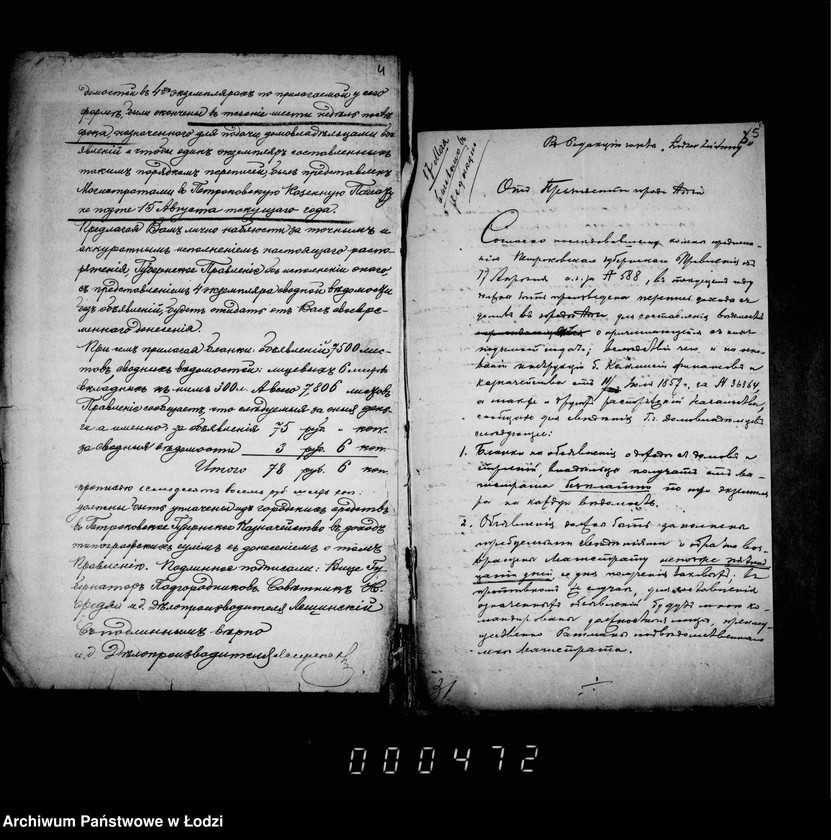 4
домостей въ 4хъ экземплярахъ по прилагаемой у сего
формѣ, были окончены въ теченіе шести недѣль послѣ
срока, назначеннаго для подачи домовладѣльцами объ-
явленій и чтобы одинъ экземпляръ составленныхъ
такимъ порядкомъ переписей, былъ представленъ
Магистратомъ въ Петроковскую Казенную Палату
не позже 15 Августа текущаго года.
Предлагая Вамъ лично наблюсти за точнымъ и
аккуратнымъ исполненіемъ настоящаго распо-
ряженія, Губернское Правленіе объ исполненіи онаго
съ представленіемъ 4 экземпляра сводной вѣдомости
объявленій, будетъ ожидать отъ Васъ своевре-
меннаго донесенія.
При семъ прилагая бланки: объявленій 7500 лис-
товъ сводныхъ вѣдомостей: лицевыхъ 6 листовъ
вкладныхъ къ нимъ 300 л. А всего 7,806 листовъ
Правленіе сообщаетъ, что слѣдуемыя за оныя день-
ги а именно: за объявленія 75 руб. " коп.
за сводныя вѣдомости 3 руб. 6 коп.
Итого 78 руб. 6 коп.
прописью семьдесятъ восемь руб. шесть коп:
должны быть уплачены изъ городскихъ средствъ
въ Петроковское Губернское Казначейство въ доходъ
типографскихъ суммъ съ донесеніемъ о томъ
Правленію. Подлинное подписали: Вице Гу-
бернаторъ Подгородниковъ, Совѣтникъ
и.д. Дѣлопроизводителя Лещинскій
Съ подлиннымъ вѣрно
и.д. Дѣлопроизводителя
5
17 Мая
въ Редакцію
Въ Редакцію газеты „Lodzer Zeitung"
Отъ Президента города Лодзи
Согласно послѣдовавшему
Петроковскаго Губернскаго Правленія отъ
17 Апрѣля с.г. за № 588, въ текущемъ году
должна быть произведена перепись дохода съ
домовъ въ городѣ Лодзи, для составленія вѣдомости
о причитающемся съ нихъ
податѣ; вслѣдствіе чего и на осно-
ваніи инструкціи б. Коммисіи финансовъ и
казначейства отъ Іюля 1857 г. за № 36364,
а также и другихъ распоряженій Начальства,
сообщаю для свѣдѣнія Г.г. Домовладѣльцевъ
слѣдующее:
1. Бланки на объявленія о доходѣ съ домовъ и
строеній владѣльцы получатъ отъ Ма-
гистрата безплатно по три экземпля-
ра на каждую вѣдомость.
2. Объявленія должны быть заполнены
требуемыми свѣдѣніями и обратно воз-
вращены Магистрату не позже пятнад-
цати дней со дня полученія таковыхъ; въ
противномъ случаѣ, для составленія
означенныхъ объявленій будутъ мною ко-
мандированы должностныя лица,
Магистрата.
31
000472
Archiwum Państwowe w Łodzi